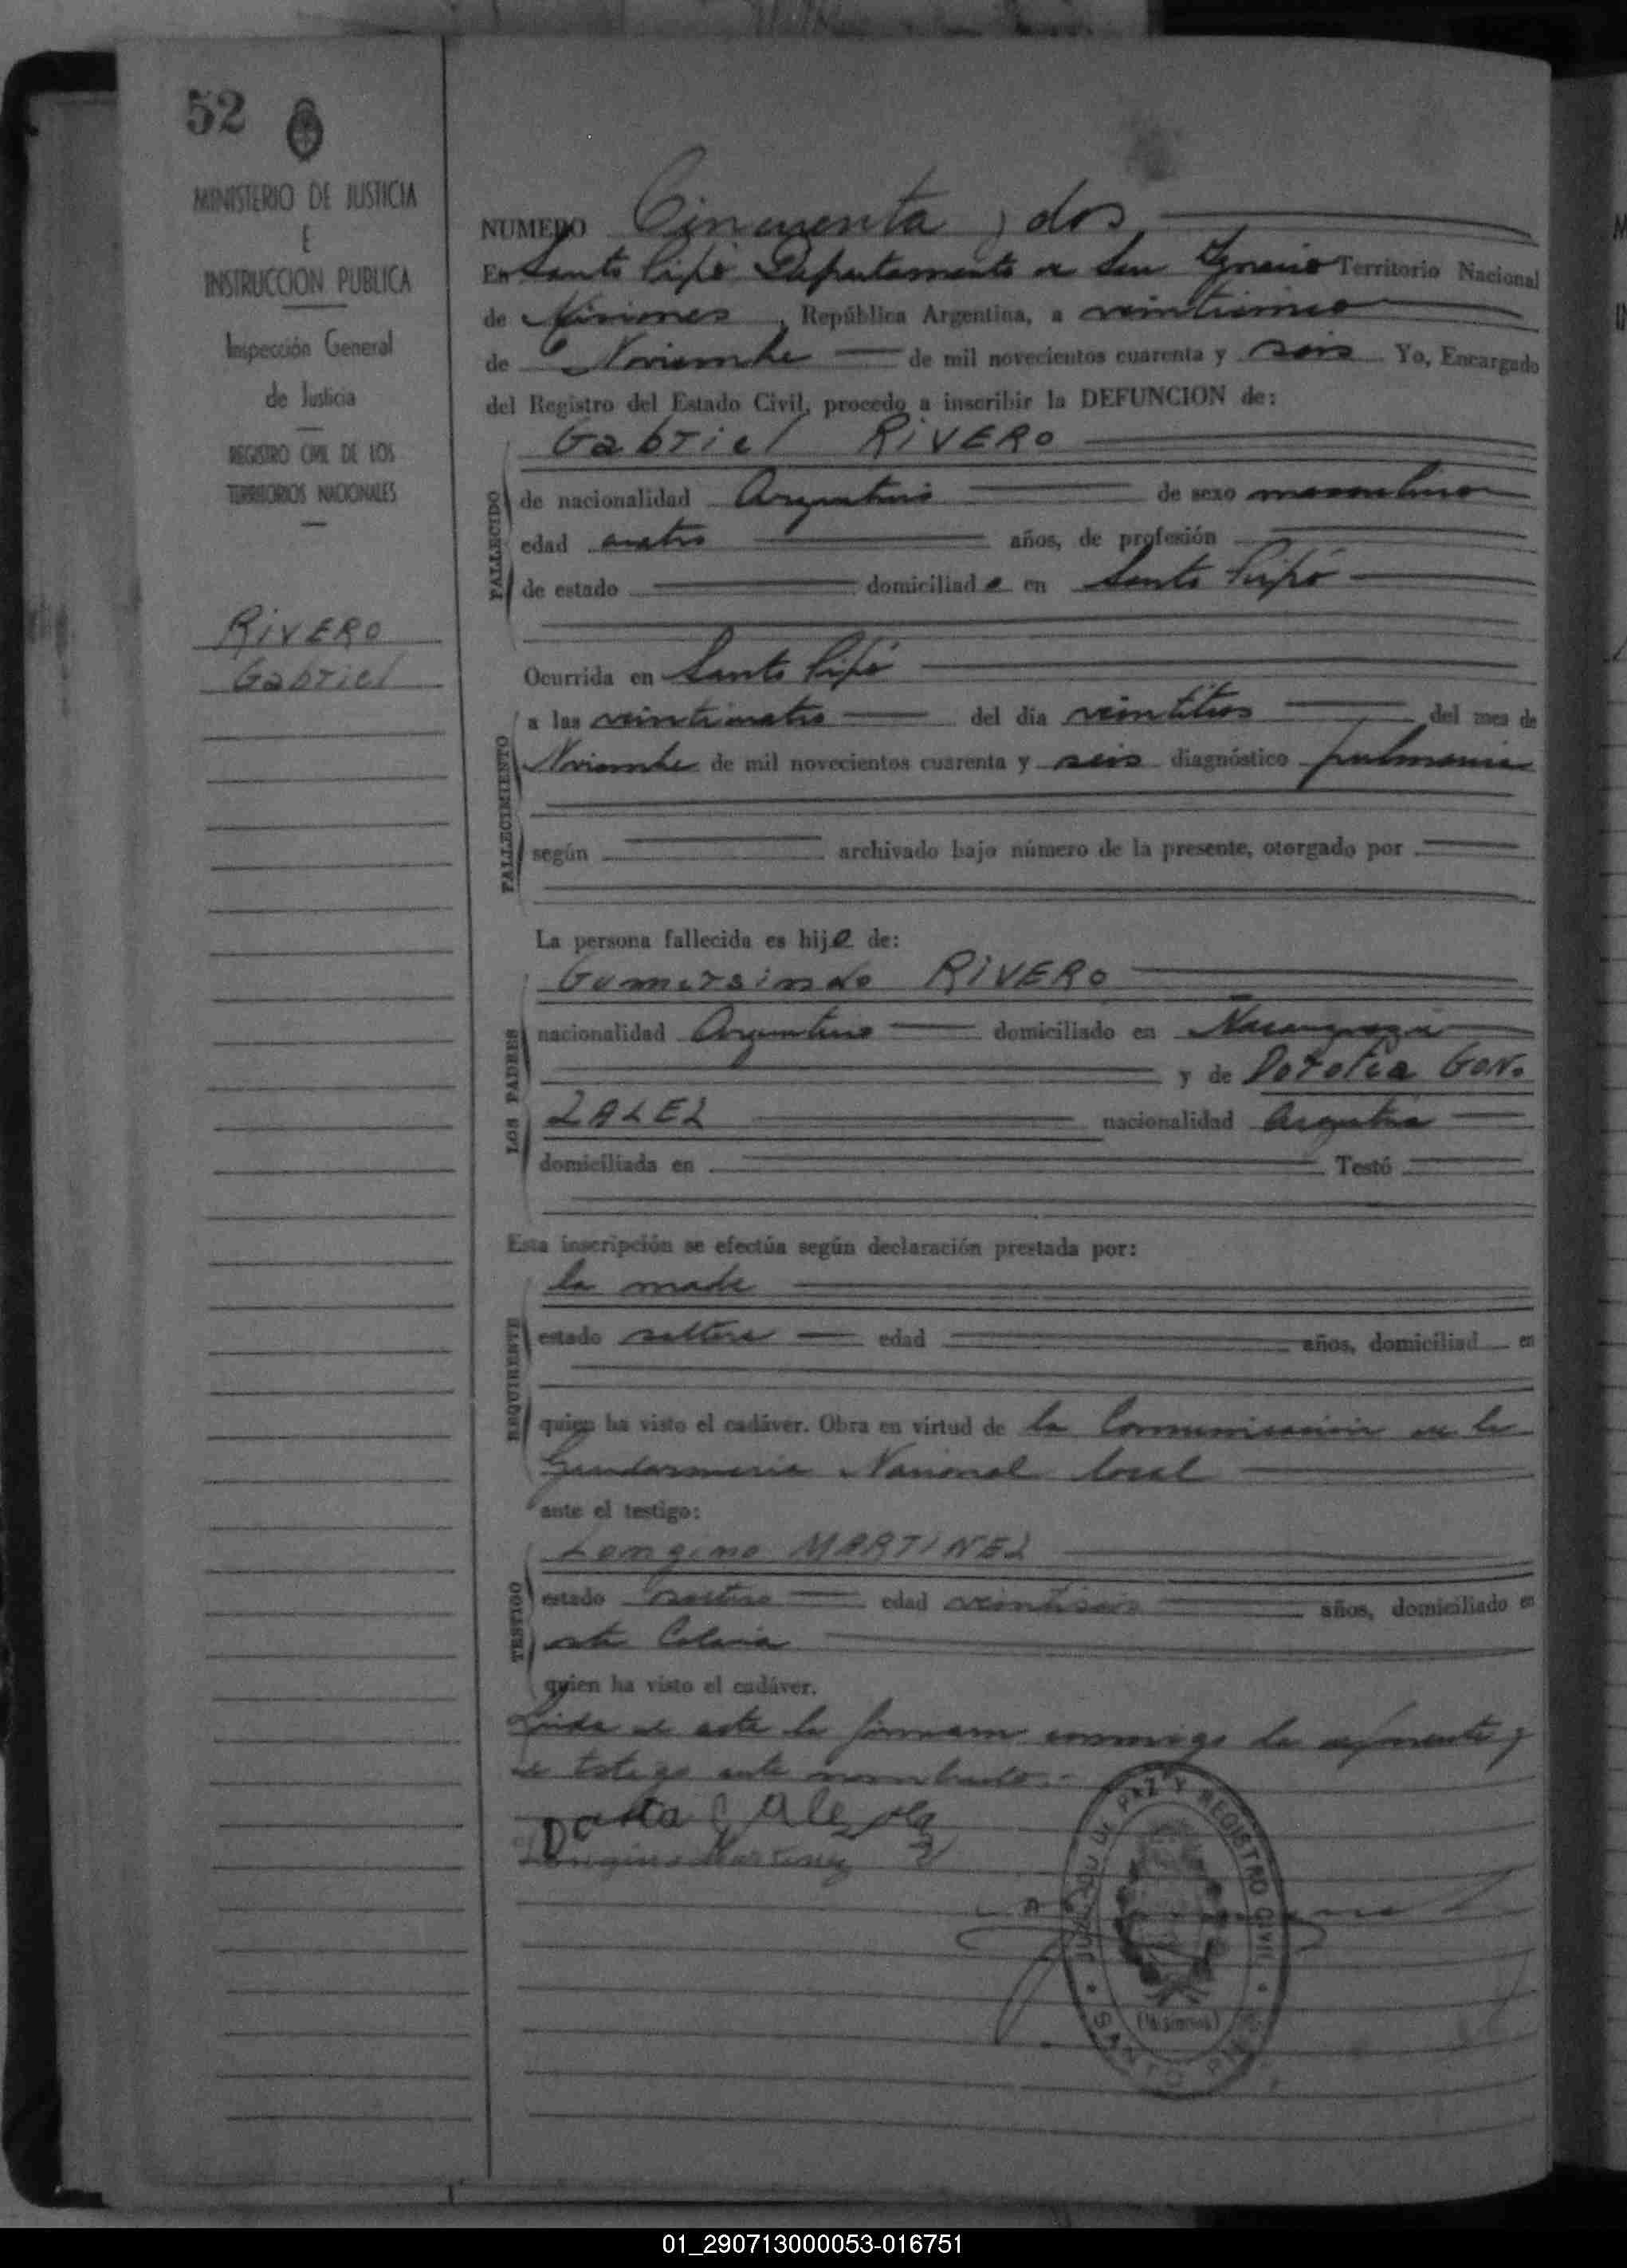 52
MINISTERIO DE JUSTICIA
E
INSTRUCCION PUBLICA
Inspección General
de Justicia
REGISTRO CIVIL DE LOS
TERRITORIOS NACIONALES
RIVERO
Gabriel
NUMERO Cincuenta y dos
En Santo Pipó Departamento de San Ignacio Territorio Nacional
de Misiones, República Argentina, a veinticinco
de Noviembre de mil novecientos cuarenta y seis Yo, Encargado
del Registro del Estado Civil, procedo a inscribir la DEFUNCION de:
Gabriel RIVERO
FALLECIDO
de nacionalidad Argentino de sexo masculino
edad cuatro años, de profesión
de estado domiciliado en Santo Pipó
Ocurrida en Santo Pipó
FALLECIMIENTO
a las veinticuatro del día veintitres del mes de
Noviembre de mil novecientos cuarenta y seis diagnóstico pulmonia
según archivado bajo número de la presente, otorgado por
La persona fallecida es hijo de:
Gumersindo RIVERO
LOS PADRES
nacionalidad Argentino domiciliado en
y de Dorotea GON.
ZALEZ nacionalidad Argentina
domiciliada en Testó
Esta inscripción se efectúa según declaración prestada por:
la madre
REQUIRENTE
estado soltera edad años, domiciliad en
quien ha visto el cadáver. Obra en virtud de la Comunicación de la
Gendarmeria Nacional local
ante el testigo:
Longino MARTINEZ
TESTIGO
estado soltero edad veintiseis años, domiciliado en
esta Colonia
quien ha visto el cadáver.
Leida el acta la firman conmigo la exponente y
el testigo ante nombrado.-
Longino Martinez
JUZGADO DE PAZ Y REGISTRO CIVIL
(Misiones)
SANTO PIPÓ
01_290713000053-016751